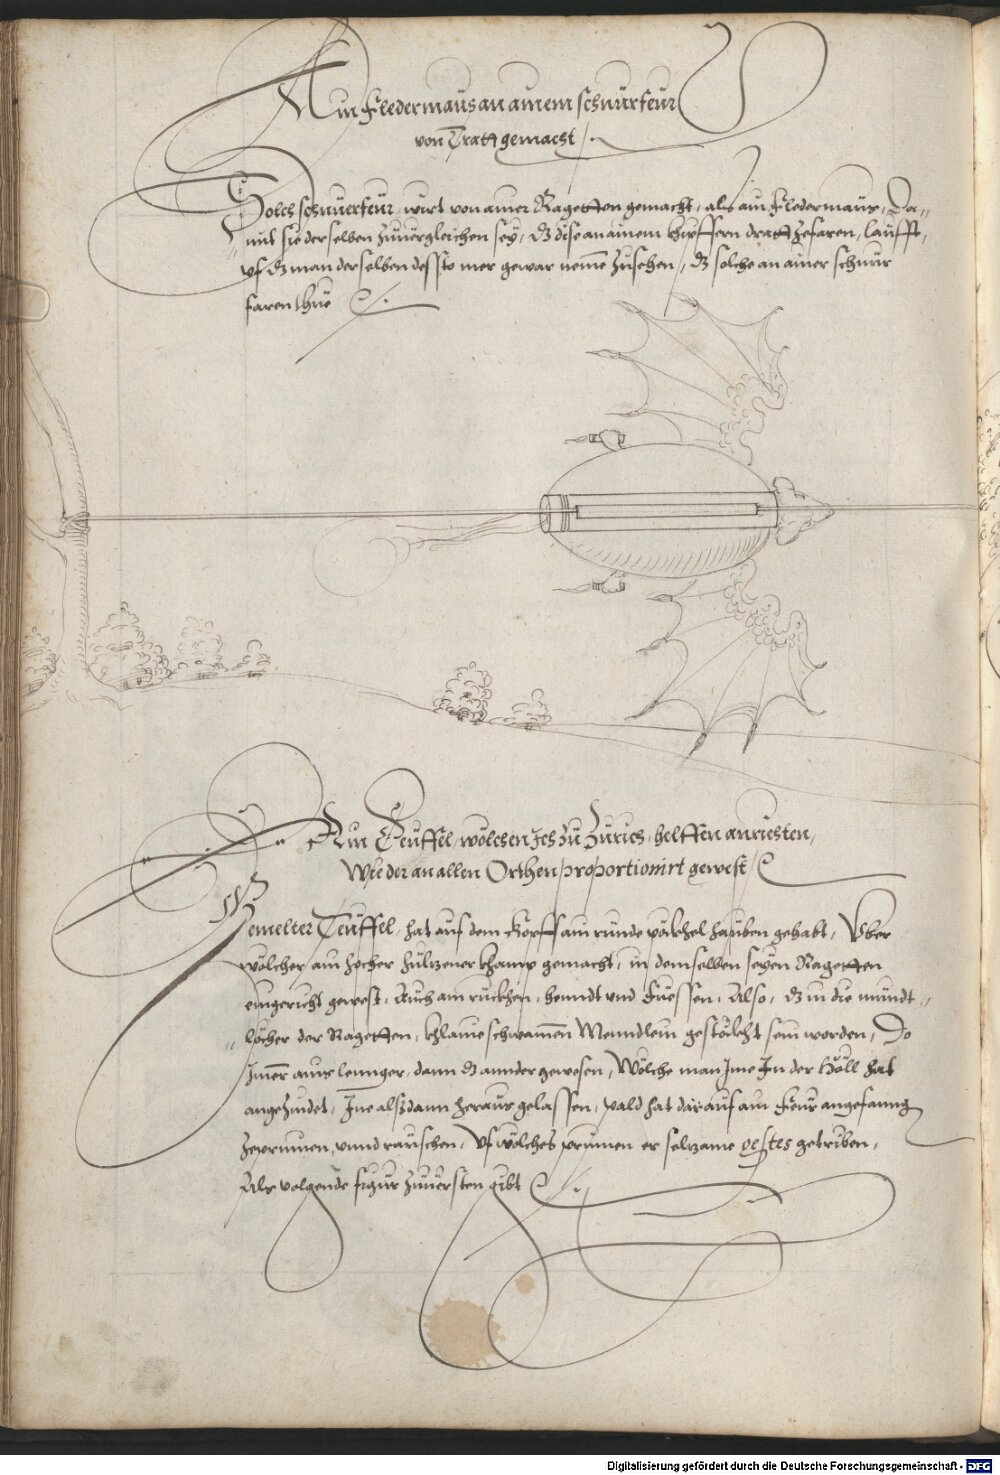 Ain Fledermaus an ainem schnürfeür
von Tratt gemacht
Solch schnüerfeür, wirt von ainer Ragetten gemacht, als ain Fledermaus, Da-
mit sie derselben züuergleichen sey, dz dise an ainem khipffern dratt zefaren, laufft,
vf dz man derselben dessto mer gewar neme züsehen, dz solche an ainer schnür
faren thüe
Ain Teüffel, wölchen Ich zü Zürich, helffen anrichten,
Wie der an allen Orthen proportionirt gewest
Gemelter Teüffel, hat auf dem Kopff ain runde päckhel hauben gehabt, Vber
wölcher ain hocher hültzener khamp gemacht, in demselben seyen Ragetten
eingericht gewest, Auch am rückhen, henndt vnd Füessen, Also, dz in die mundt-
löcher der Ragetten, khlaine schwamen Menndlein gestöckht sein worden, Do
Imer ains lennger, dann dz annder gewesen, Wölche man Ime In der Höll hat
angezündet, Ine alsdann heraus gelassen, pald hat darauf ain Feür angefanng
zeprinnen, vnnd rauschen, Vf wölches prinnen er seltzame gestes getriben,
Als volgende figur züuersten gibt
Digitalisierung gefördert durch die Deutsche Forschungsgemeinschaft - DFG